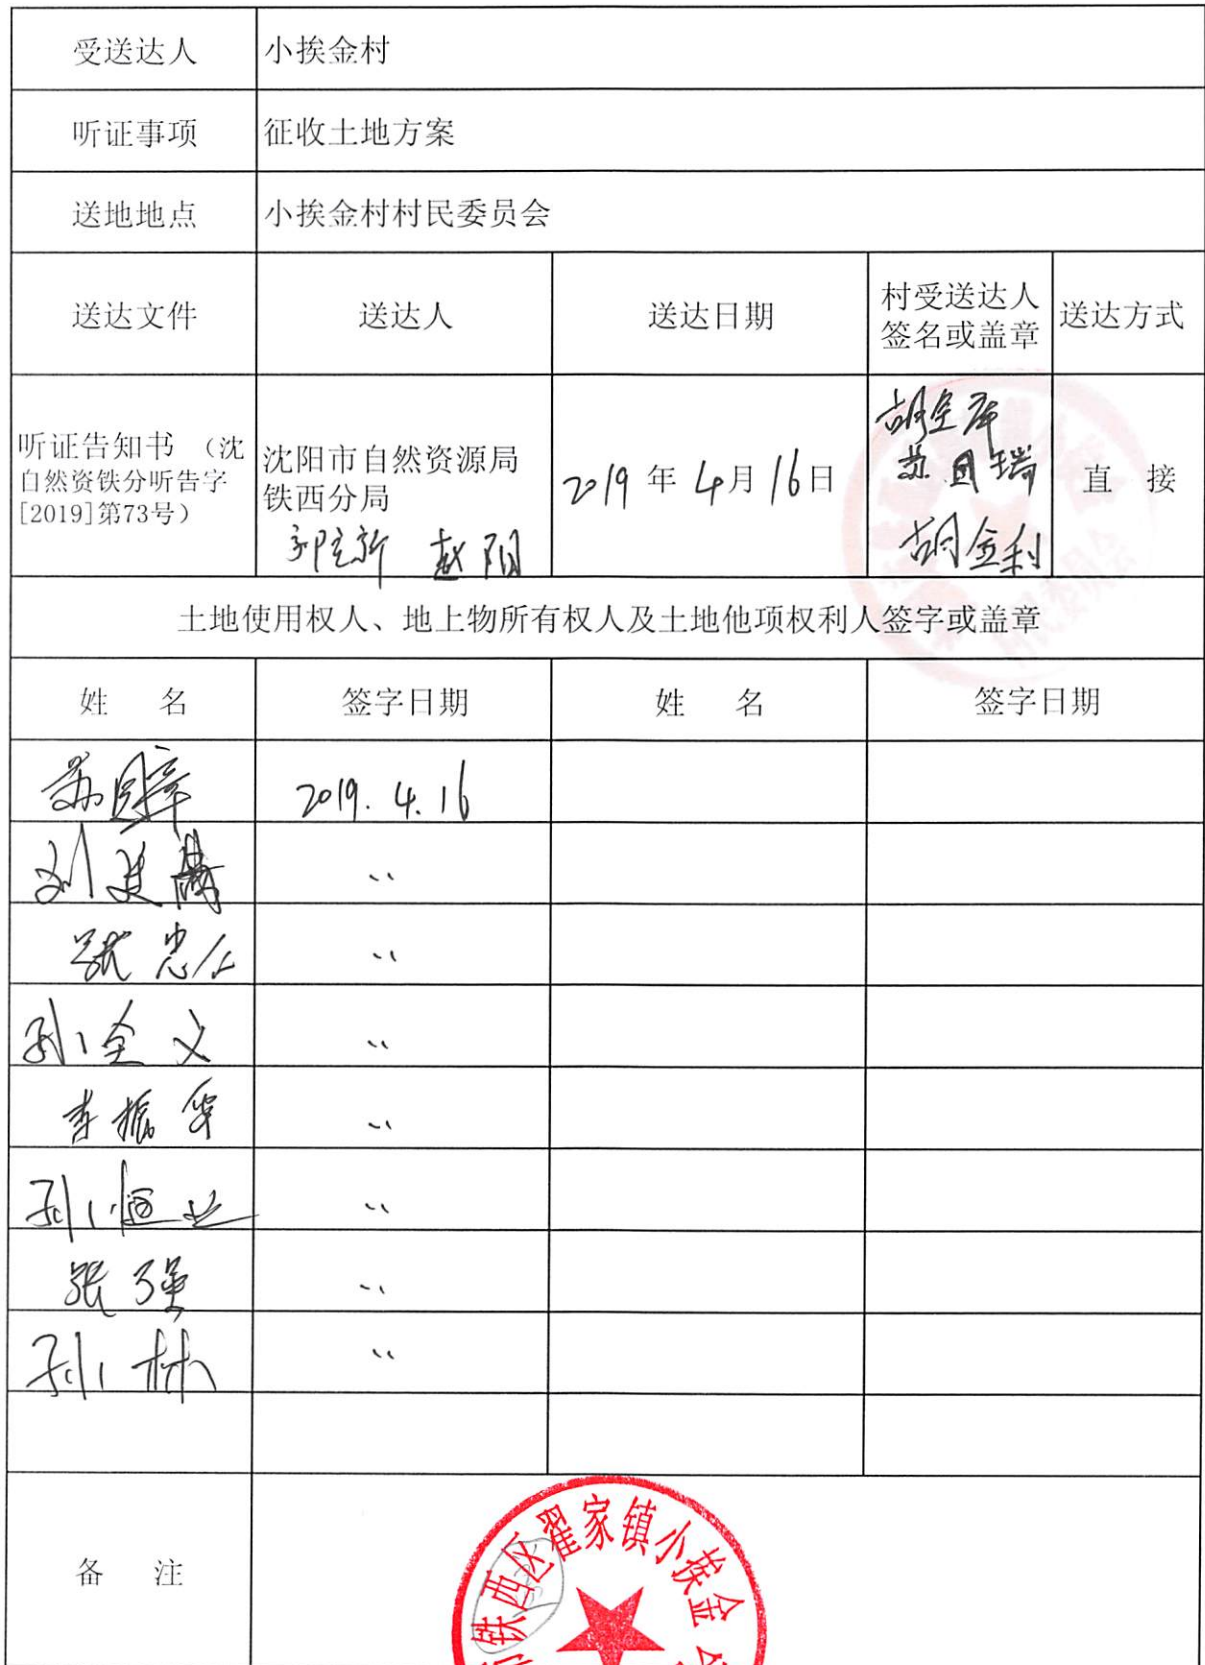 受送达人 小挨金村
听证事项 征收土地方案
送地地点 小挨金村村民委员会
送达文件 送达人 送达日期 村受送达人 送达方式
签名或盖章
听证告知书 （沈
自然资铁分听告字
[2019]第73号）
沈阳市自然资源局
铁西分局
赵阳
2019年4月16日
胡金库
苏国瑞
胡金利
直 接
土地使用权人、地上物所有权人及土地他项权利人签字或盖章
姓 名 签字日期 姓 名 签字日期
2019.4.16
刘
张忠
孙全文 〃
李振
孙恒
张强 〃
孙林 〃
备 注
铁西区翟家镇小挨金